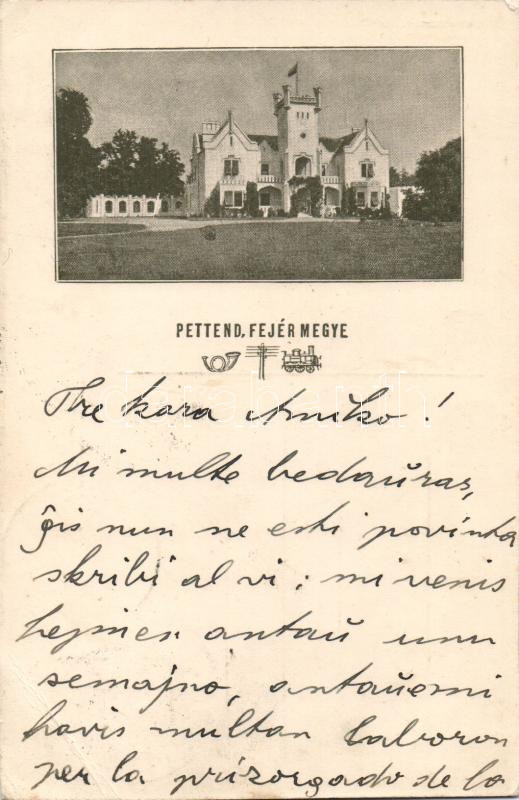 PETTEND, FEJÉR MEGYE
Tre kara Amiko!
Mi multe bedaŭras,
ĝis nun ne esti povinta
skribi al vi; mi venis
hejmen antaŭ unu
semajno, antaŭ
havis multan laboron
per la prizorgado de la